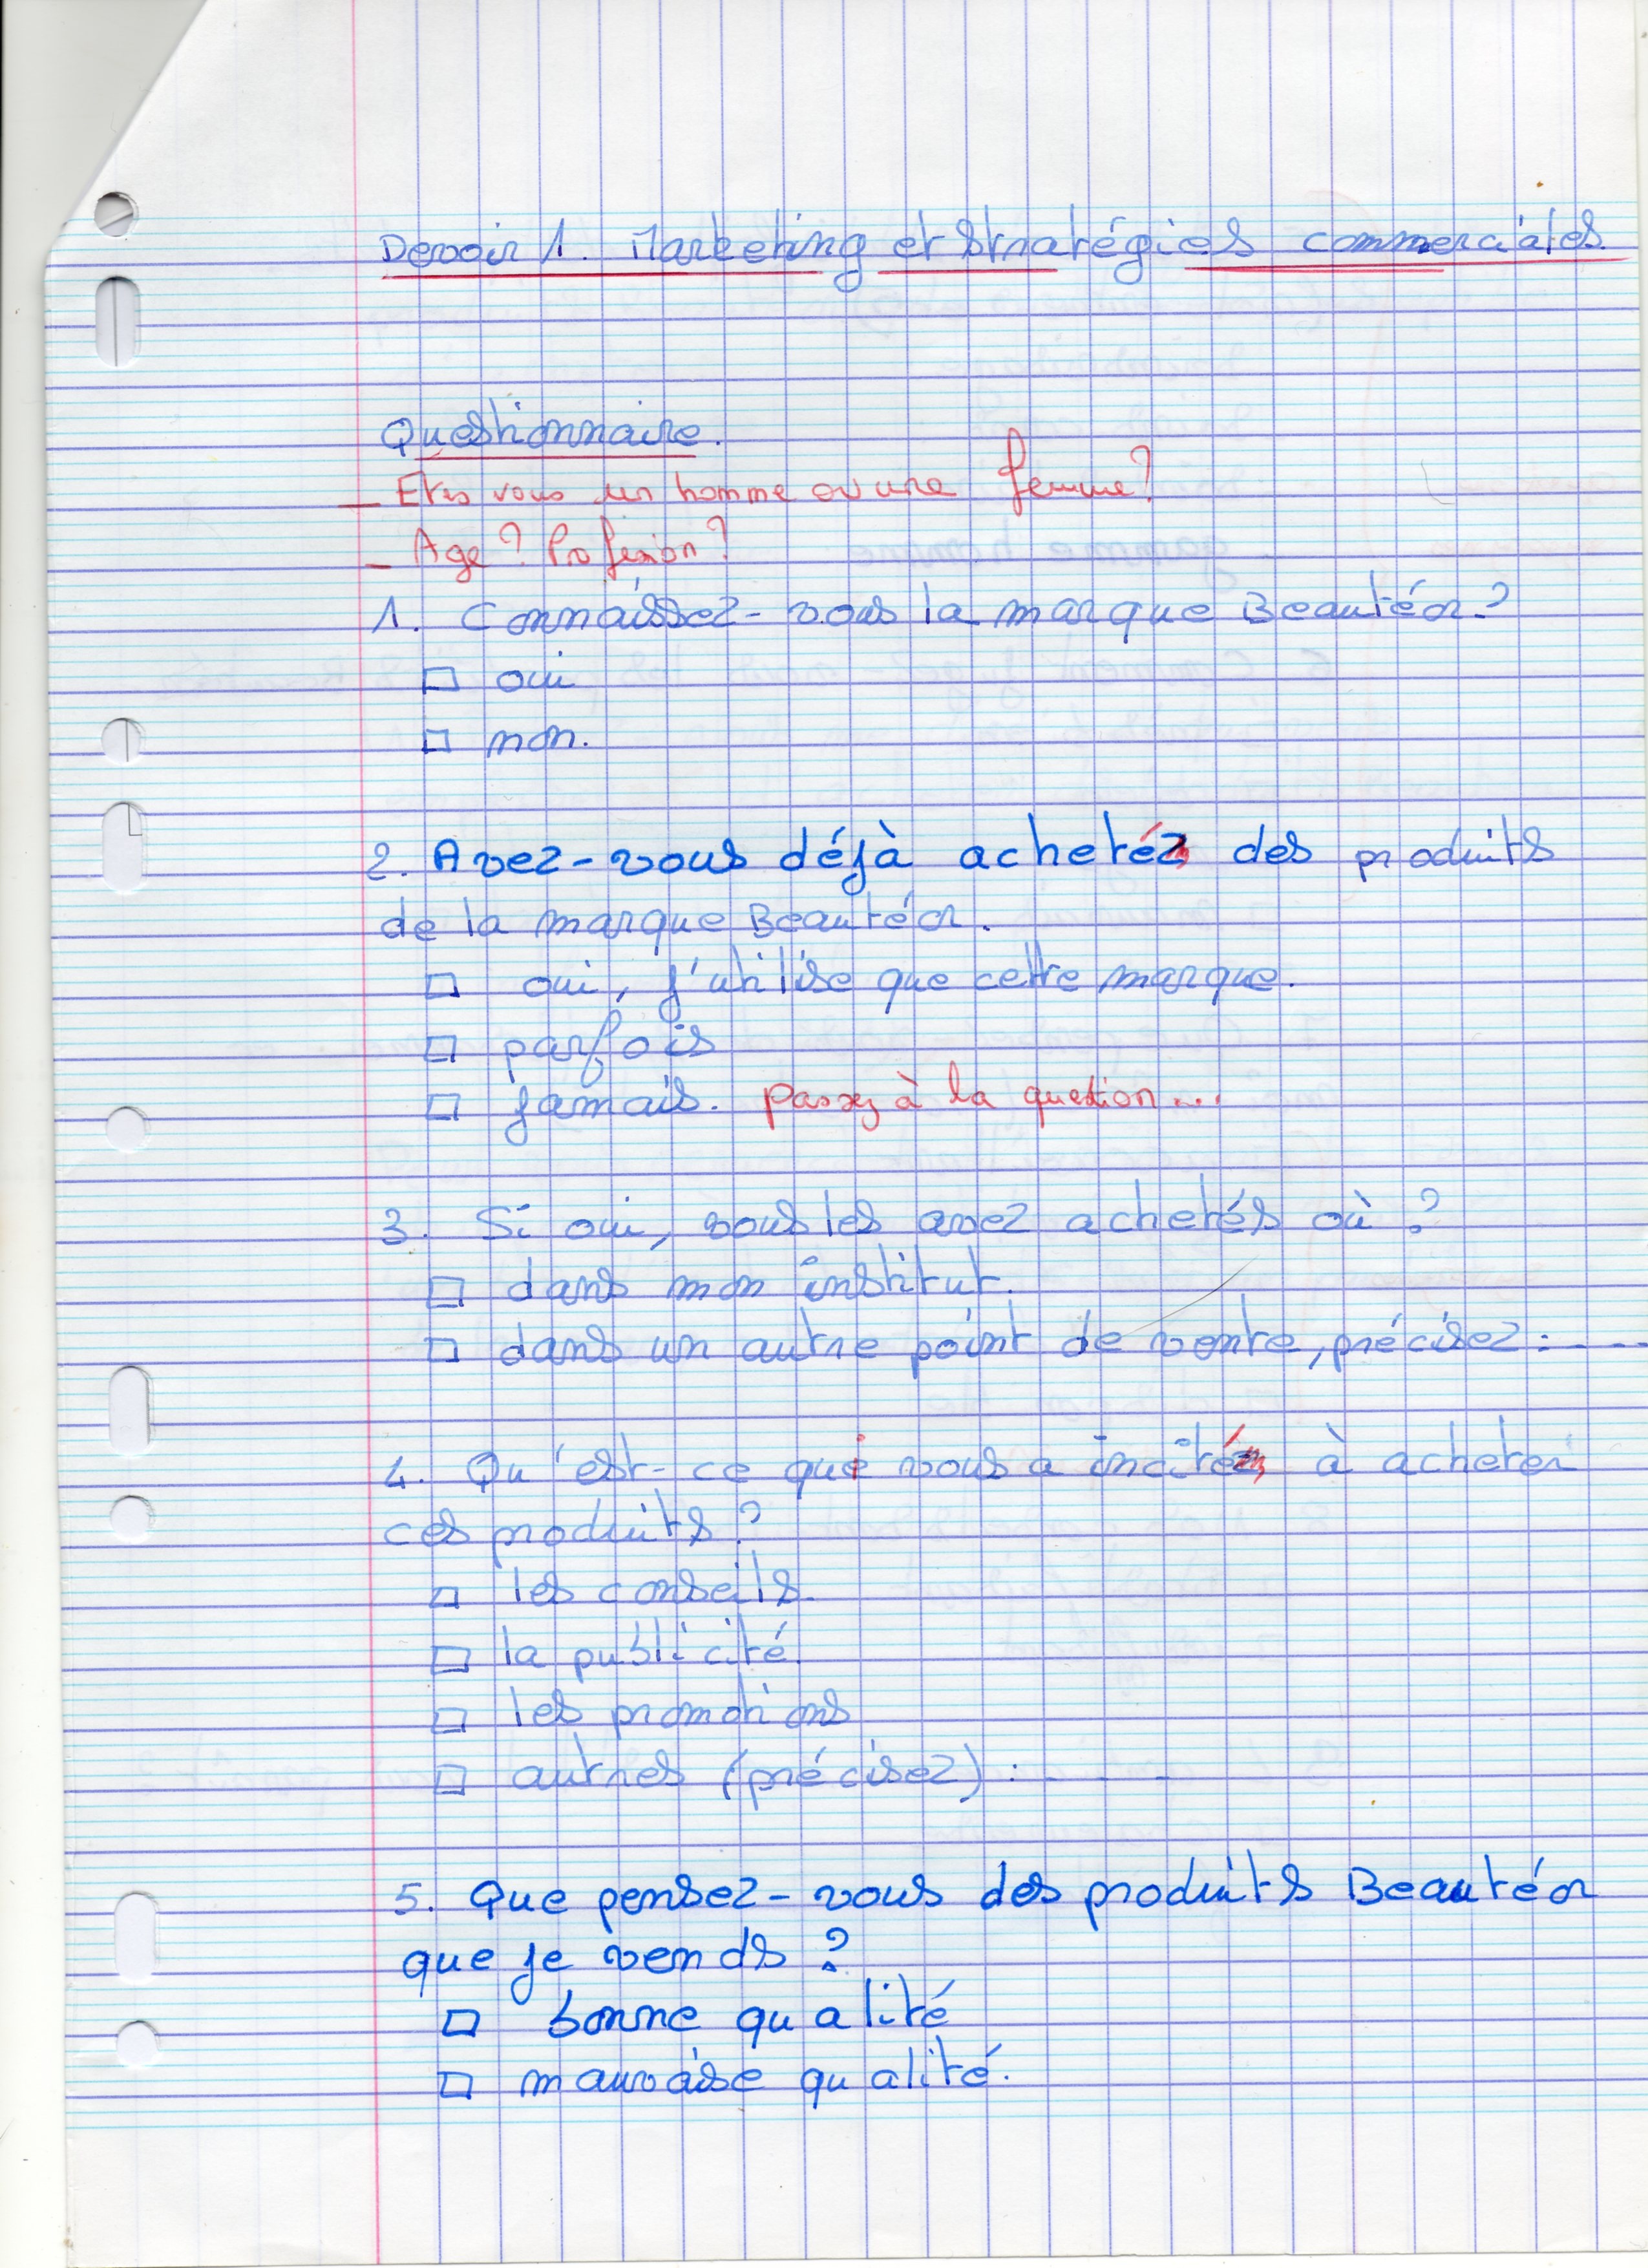 Devoir 1. Marketing et stratégies commerciales.
Questionnaire.
_ Etes vous un homme ou une femme?
_ Age? Profession?
1. Connaissez-vous la marque Beautéor?
□ oui
□ non.
2. Avez-vous déjà acheté des produits
de la marque Beautéor.
□ oui, j'utilise que cette marque.
□ parfois
□ jamais. Passez à la question...
3. Si oui, vous les avez achetés où ?
□ dans mon institut.
□ dans un autre point de vente, précisez : ----
4. Qu'est-ce qui vous a incité à acheter
ces produits ?
□ les conseils.
□ la publicité.
□ les promotions
□ autres (précisez) : - - -
5. Que pensez-vous des produits Beautéor
que je vends ?
□ bonne qualité
□ mauvaise qualité.